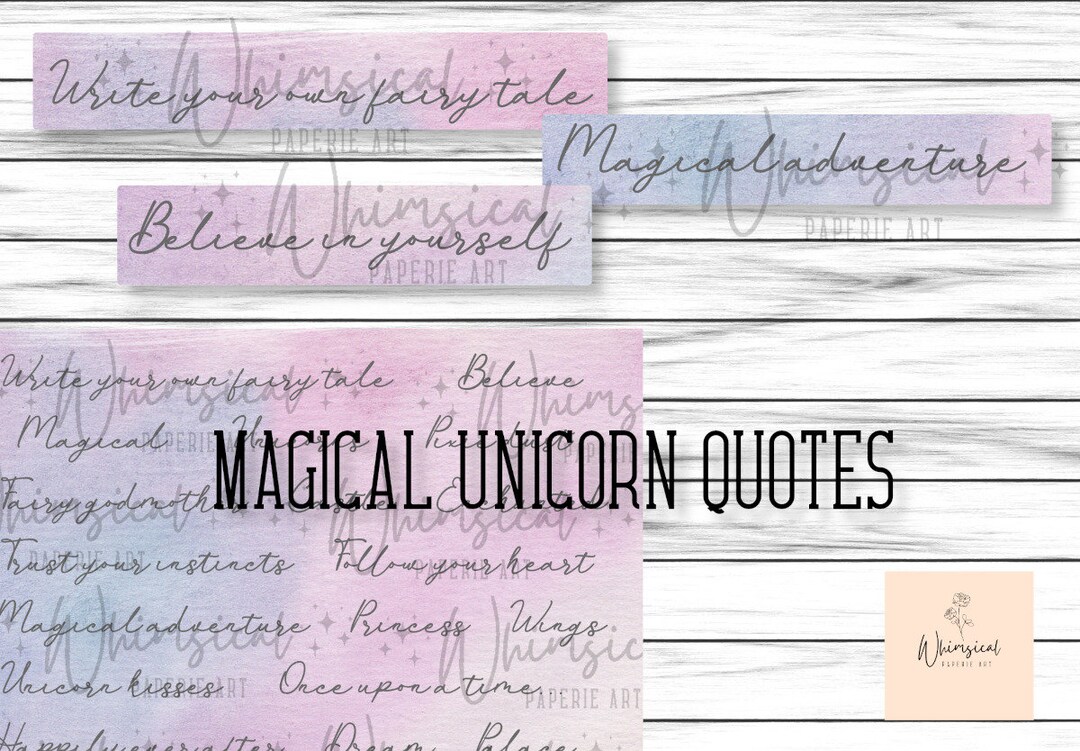 Write your own fairy tale
Whimsical
PAPERIE ART
Magical adventure
Whimsical
PAPERIE ART
Believe in yourself
Whimsical
PAPERIE ART
Write your own fairy tale Believe
Magical Unicorns Pixie dust
MAGICAL UNICORN QUOTES
Fairy godmother Castle Enchanted
Trust your instincts Follow your heart
Magical adventure Princess Wings
Unicorn kisses Once upon a time...
Happily ever after Dream Palace
Whimsical
PAPERIE ART